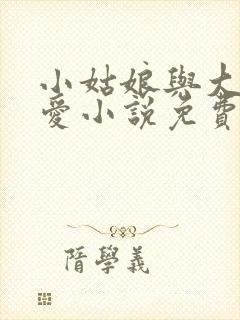 小姑娘與大
愛小說免費
隋學義